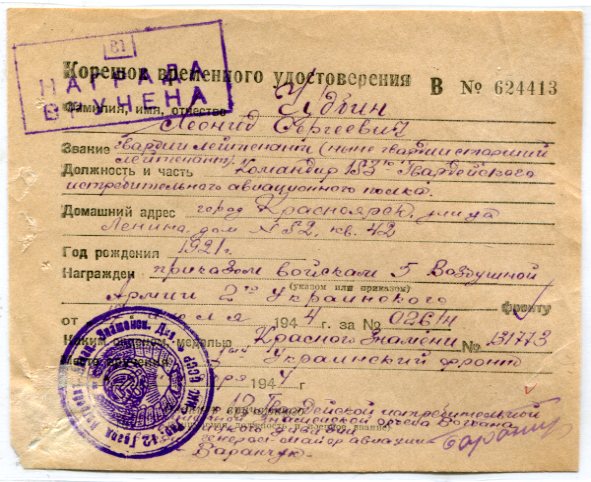 В1
НАГРАДА
ВРУЧЕНА
Корешок временного удостоверения В № 624413
Фамилия, имя, отчество
Леонид Сергеевич
Звание гвардии лейтенант (ныне гвардии старший
лейтенант).
Должность и часть Командир 153го Гвардейского
истребительного авиационного полка.
Домашний адрес город Красноярск, улица
Ленина, дом № 52, кв. 42
Год рождения 1921г.
Награжден приказом войскам 5 Воздушной
(указом или приказом)
Армии 2го Украинского фронту
от 194 4 г. за № 026/н
Каким орденом, медалью Красного Знамени № 131773
Украинский фронт
194 4
12 Гвардейской истребительной
Знаменской ордена Богдана
дивизии
генерал майор авиации
Баранчук.